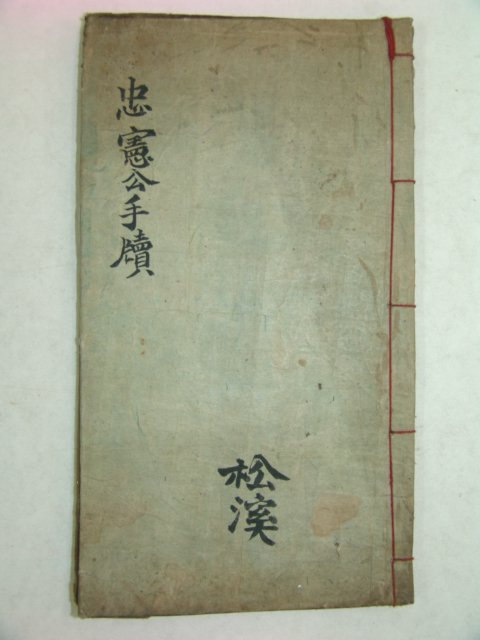 忠憲公手牘
松溪